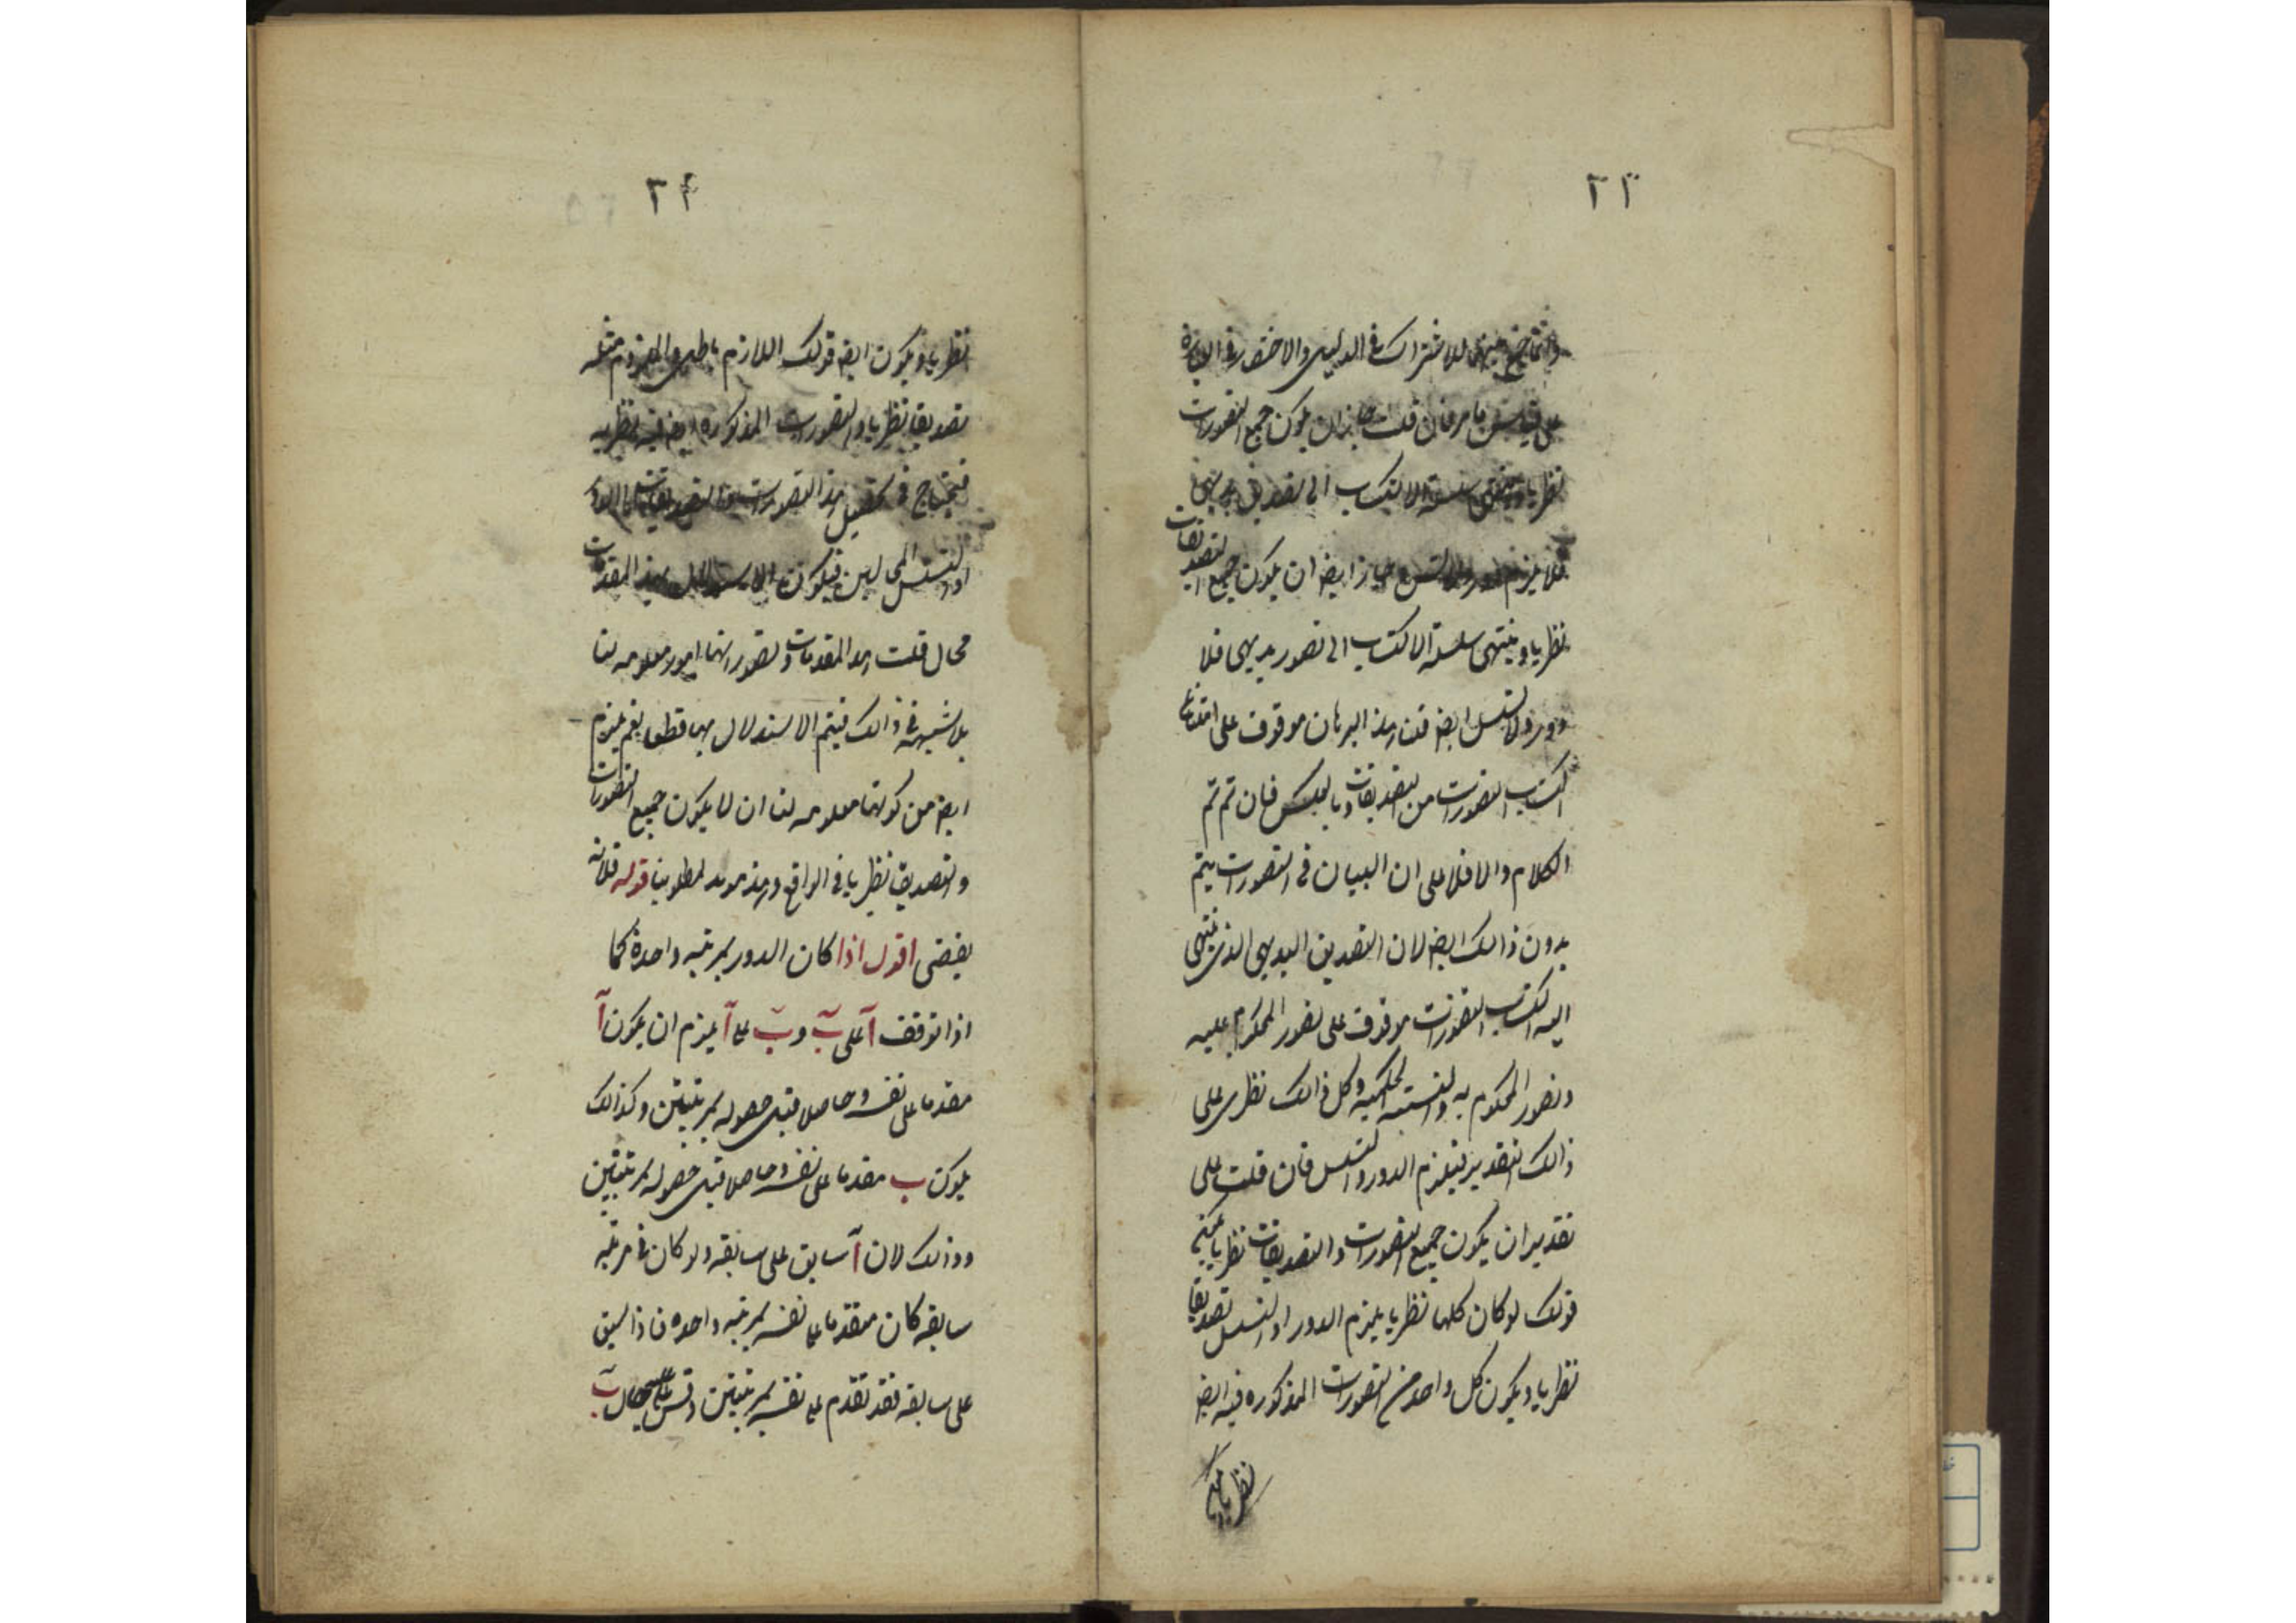 ٢٣
وانما جمع بينهما للاشتراك في الدليل والاختصار في العبارة
على قياس ما مر فان قلت جاز ان يكون جميع التصورات
نظريا وينتهى سلسلة الاكتساب الى تصديق بديهى
فلا يلزم دور ولا تسلسل وجاز ايضا ان يكون جميع التصديقات
نظريا وينتهى سلسلة الاكتساب الى تصور بديهى فلا
دور ولا تسلسل ايضا قلت هذا البرهان موقوف على امتناع
اكتساب التصورات من التصديقات وبالعكس فان تم تم
الكلام والا فلا على ان البيان في التصورات يتم
بدون ذالك ايضا لان التصديق البديهى الذى ينتهى
اليه اكتساب التصورات موقوف على تصور المحكوم عليه
وتصور المحكوم به والنسبة الحكمية وكل ذالك نظرى على
ذالك التقدير فيلزم الدور والتسلسل فان قلت على
تقدير ان يكون جميع التصورات والتصديقات نظريا يكون
قولك لو كان كلها نظريا يلزم الدور او التسلسل تصديقا
نظريا ويكون كل واحد من التصورات المذكوره فيه ايضا
نظريا ويكون
٢٤
نظريا ويكون ايضا قولك اللازم باطل والملزوم مثله
تصديقا نظريا والتصورات المذكوره ايضا فيه نظريه
فيحتاج في تحصيل هذه التصورات والتصديقات الى الدور
او التسلسل المحالين فيكون الاستدلال بهذه المقدمات
محال قلت هذه المقدمات وتصوراتها امور معلومه لنا
بلا شبهة في ذالك فيتم الاستدلال بها قطعا نعم يلزم
ايضا من كونها معلومه لنا ان لا يكون جميع التصورات
والتصديق نظريا في الواقع وهذا مؤيد لمطلوبنا قوله فلانه
يفضى اقول اذا كان الدور بمرتبه واحدة كما
اذا توقف آ على ب وب على آ يلزم ان يكون آ
مقدما على نفسه وحاصلا قبل حصوله بمرتبتين وكذالك
يكون ب مقدما على نفسه وحاصلا قبل حصوله بمرتبتين
وذالك لان آ سابق على سابقه ولو كان في مرتبه
سابقه كان متقدما على نفسه بمرتبه واحده فاذا سبق
على سابقه فقد تقدم على نفسه بمرتبتين وقس على حال ب